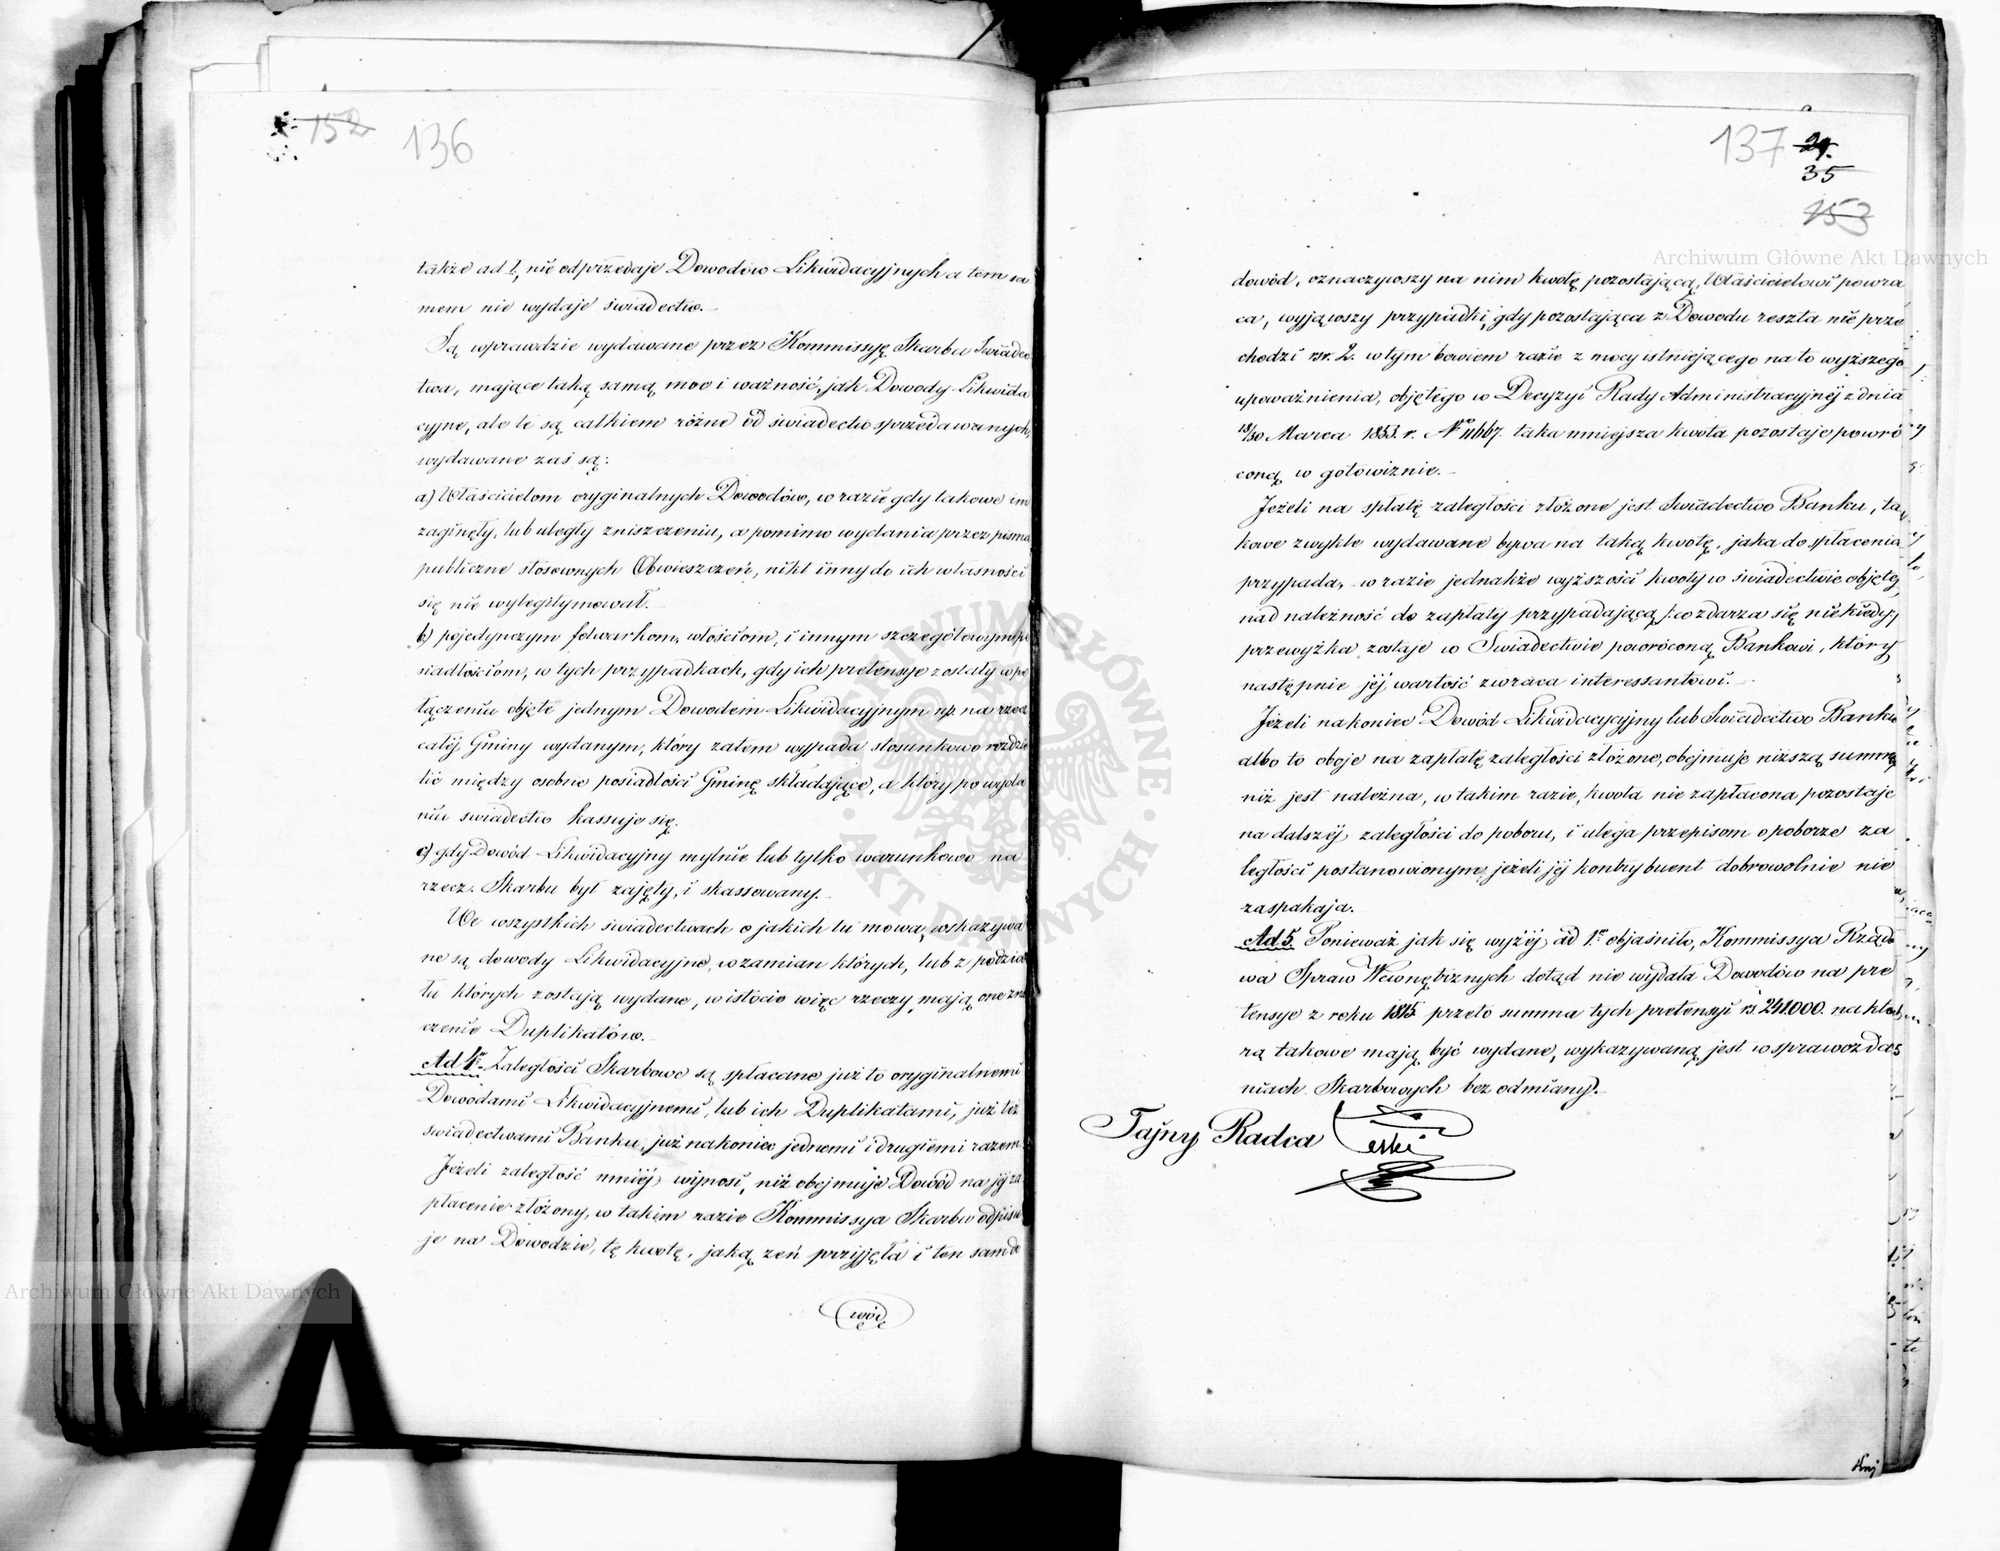 152 136
także ad I, nie odprzedaje Dowodów Likwidacyjnych a tem sa
mem nie wydaje świadectw.
Są wprawdzie wydawane przez Kommissyę Skarbu Świadec
twa, mające taką samą moc i ważność, jak Dowody Likwida
cyjne, ale te są całkiem różne od świadectw sprzedawanych,
wydawane zaś są:
a) Właścicielom oryginalnych Dowodów, w razie gdy takowe im
zaginęły, lub uległy zniszczeniu, a pomimo wydania przez pisma
publiczne stósownych Obwieszczeń, nikt inny do ich własności
się nie wylegitymował.
b) pojedynczym folwarkom, włościom, i innym szczegółowym po
siadłościom, w tych przypadkach, gdy ich pretensye zostały w po
łączeniu objęte jednym Dowodem Likwidacyjnym np. na rzecz
całéj Gminy wydanym, który zatem wypada stosunkowo rozdzie
lić między osobne posiadłości Gminę składające, a który po wyda
niu świadectw kassuje się.
c) gdy Dowód Likwidacyjny mylnie lub tylko warunkowo na
rzecz Skarbu był zajęty, i skassowany.
We wszystkich świadectwach o jakich tu mowa, wskazywa
ne są dowody Likwidacyjne, w zamian których, lub z podzia
łu których zostają wydane, w istocie więc rzeczy mają one zna
czenie Duplikatów.
Ad 4. Zaległości Skarbowe są spłacane już to oryginalnemi
Dowodami Likwidacyjnemi, lub ich Duplikatami, już też
świadectwami Banku, już nakoniec jednemi i drugiemi razem.
Jeżeli zaległość mniéj wynosi, niż obejmuje Dowód na jéj za
płacenie złóżony, w takim razie Kommissya Skarbu odpisu
je na Dowodzie, tę kwotę, jaką zeń przyjęła i ten sam do
wód
137 24.
35
153
dowód, oznaczywszy na nim kwotę pozostającą, Właścicielowi powra
ca, wyjąwszy przypadki, gdy pozostająca z Dowodu reszta nie prze
chodzi rsr. 2. w tym bowiem razie z mocy istniejącego na to wyższego
upoważnienia, objętego w Decyzyi Rady Administracyjnéj z dnia
18/30 Marca 1853. r. Nro 11667. taka mniejsza kwota pozostaje powró
coną w gotowiznie.
Jeżeli na spłatę zaległości złóżone jest Świadectwo Banku, ta
kowe zwykle wydawane bywa na taką kwotę, jaka do spłacenia
przypada, w razie jednakże wyższości kwoty w świadectwie objętej
nad należność do zapłaty przypadającą /: co zdarza się niekiedy :/
przewyżka zostaje w Świadectwie powróconą Bankowi, który
następnie jéj wartość zwraca interessantowi.
Jeżeli nakoniec Dowód Likwidacyjny lub Świadectwo Banku
albo to oboje na zapłatę zaległości złożone, obejmuje niższą summę
niż jest należna, w takim razie, kwota nie zapłacona pozostaje
na dalszéj zaległości do poboru, i ulega przepisom o poborze za
ległości postanowionym, jeżeli jéj kontrybuent dobrowolnie nie
zaspakaja.
Ad 5. Ponieważ jak się wyżéj ad 1. objaśniło, Kommissya Rządo
wa Spraw Wewnętrznych dotąd nie wydała Dowodów na pre
tensye z roku 1815 przeto summa tych pretensyi rs. 241.000. na któ
rą takowe mają być wydane, wykazywaną jest w sprawozda
niach Skarbowych bez odmiany.
Tajny Radca
Archiwum Główne Akt Dawnych
Archiwum Główne Akt Dawnych
ARCHIWUM GŁÓWNE AKT DAWNYCH